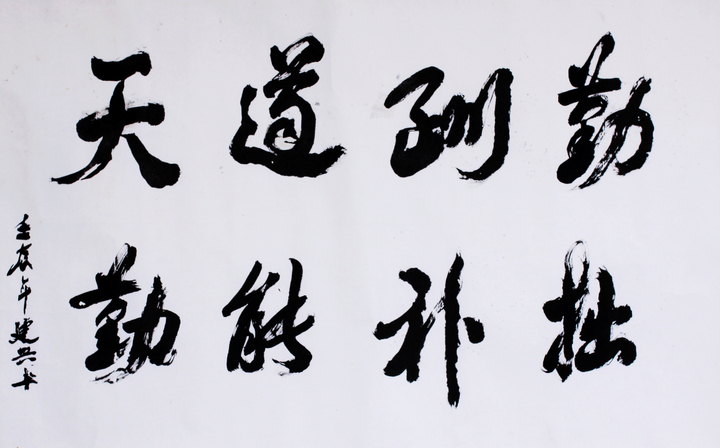 天道酬勤
勤能补拙
壬辰年建兴书